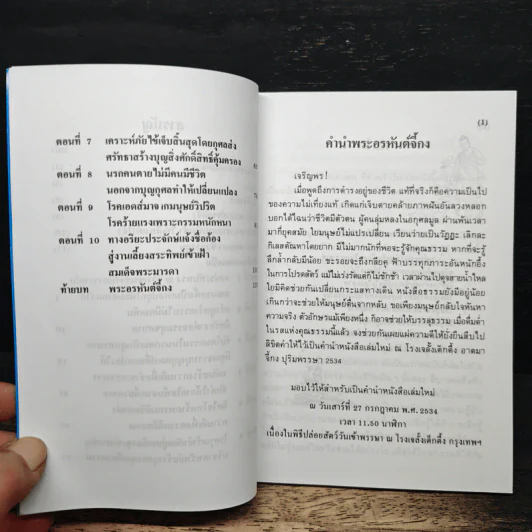 ตอนที่ 7 เคราะห์ภัยไข้เจ็บสิ้นสุดโดยกุศลส่ง
ศรัทธาสร้างบุญสิ่งศักดิ์สิทธิ์คุ้มครอง
ตอนที่ 8 นรกคนตายไม่มีคนมีชีวิต
นอกจากบุญกุศลทำให้เปลี่ยนแปลง
ตอนที่ 9 โรคเอดส์มาจาก เกมมนุษย์วิปริต
โรคร้ายแรงเพราะกรรมหนักหนา
ตอนที่ 10 ทางอริยะประจักษ์แจ้งชื่อก้อง
สู่งานเลี้ยงสระทิพย์เข้าเฝ้า
สมเด็จพระมารดา
ท้ายบท พระอรหันต์จี้กง
(1)
คำนำพระอรหันต์จี้กง
เจริญพร!
เมื่อพูดถึงการดำรงอยู่ของชีวิต แท้ที่จริงก็คือความเป็นไป
ของความไม่เที่ยงแท้ เกิดแก่เจ็บตายคล้ายภาพฝันอันลวงหลอก
บอกได้ไฉนว่าชีวิตมีตัวตน ผู้คนลุ่มหลงในอกุศลมูล ผ่านพ้นเวลา
มากี่ยุคสมัย ใยมนุษย์ไม่แปรเปลี่ยน เวียนว่ายเป็นวัฏฏะ เลิกละ
กิเลสตัณหาโดยยาก มีไม่มากนักที่พอจะรู้จักคุณธรรม หากที่จะรู้
ลึกล้ำกลับมีน้อย ชะรอยจะถึงกลียุค ฟ้าบรรทุกภาระอันหนักอึ้ง
ในการโปรดสัตว์ แม้ไม่เร่งรัดแต่ก็ไม่ชักช้า เวลาผ่านไปดุจสายน้ำไหล
ใยมิคิดช่วยกันเปลี่ยนกระแสทางเดิน หนังสือธรรมยังมีอยู่น้อย
เกินกว่าจะช่วยให้มนุษย์ตื่นจากหลับ ขอเพียงมนุษย์กลับใจค้นหา
ความจริง ตัวอักษรแม้เพียงหนึ่ง ก็อาจช่วยให้บรรลุธรรม เมื่อดื่มด่ำ
ในรสแห่งคุณธรรมนี้แล้ว จงช่วยกันเผยแผ่ความดีให้ยั่งยืนสืบไป
ลิขิตคำให้ไว้เป็นคำนำหนังสือเล่มใหม่ ณ โรงเจลั้งเต็กตึ๊ง อาตมา
จี้กง ปุริมพรรษา 2534
มอบไว้ให้สำหรับเป็นคำนำหนังสือเล่มใหม่
ณ วันเสาร์ที่ 27 กรกฎาคม พ.ศ. 2534
เวลา 11.50 นาฬิกา
เนื่องในพิธีปล่อยสัตว์วันเข้าพรรษา ณ โรงเจลั้งเต็กตึ๊ง กรุงเทพฯ